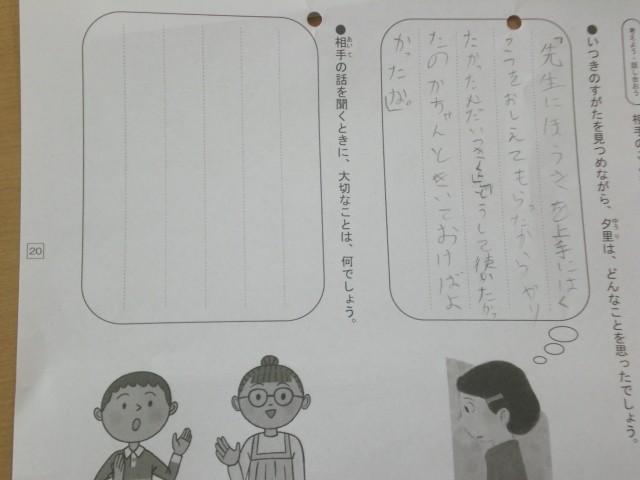 考えよう・話し合おう
●いつきのすがたを見つめながら、夕里は、どんなことを思ったでしょう。
ゆうり
「先生にほうきを上手にはく
こつをおしえてもらったからやり
たかったんだいつきくん」どうして使いたかっ
たのかちゃんときいておけばよ
かったな。
●相手の話を聞くときに、大切なことは、何でしょう。
あいて
20